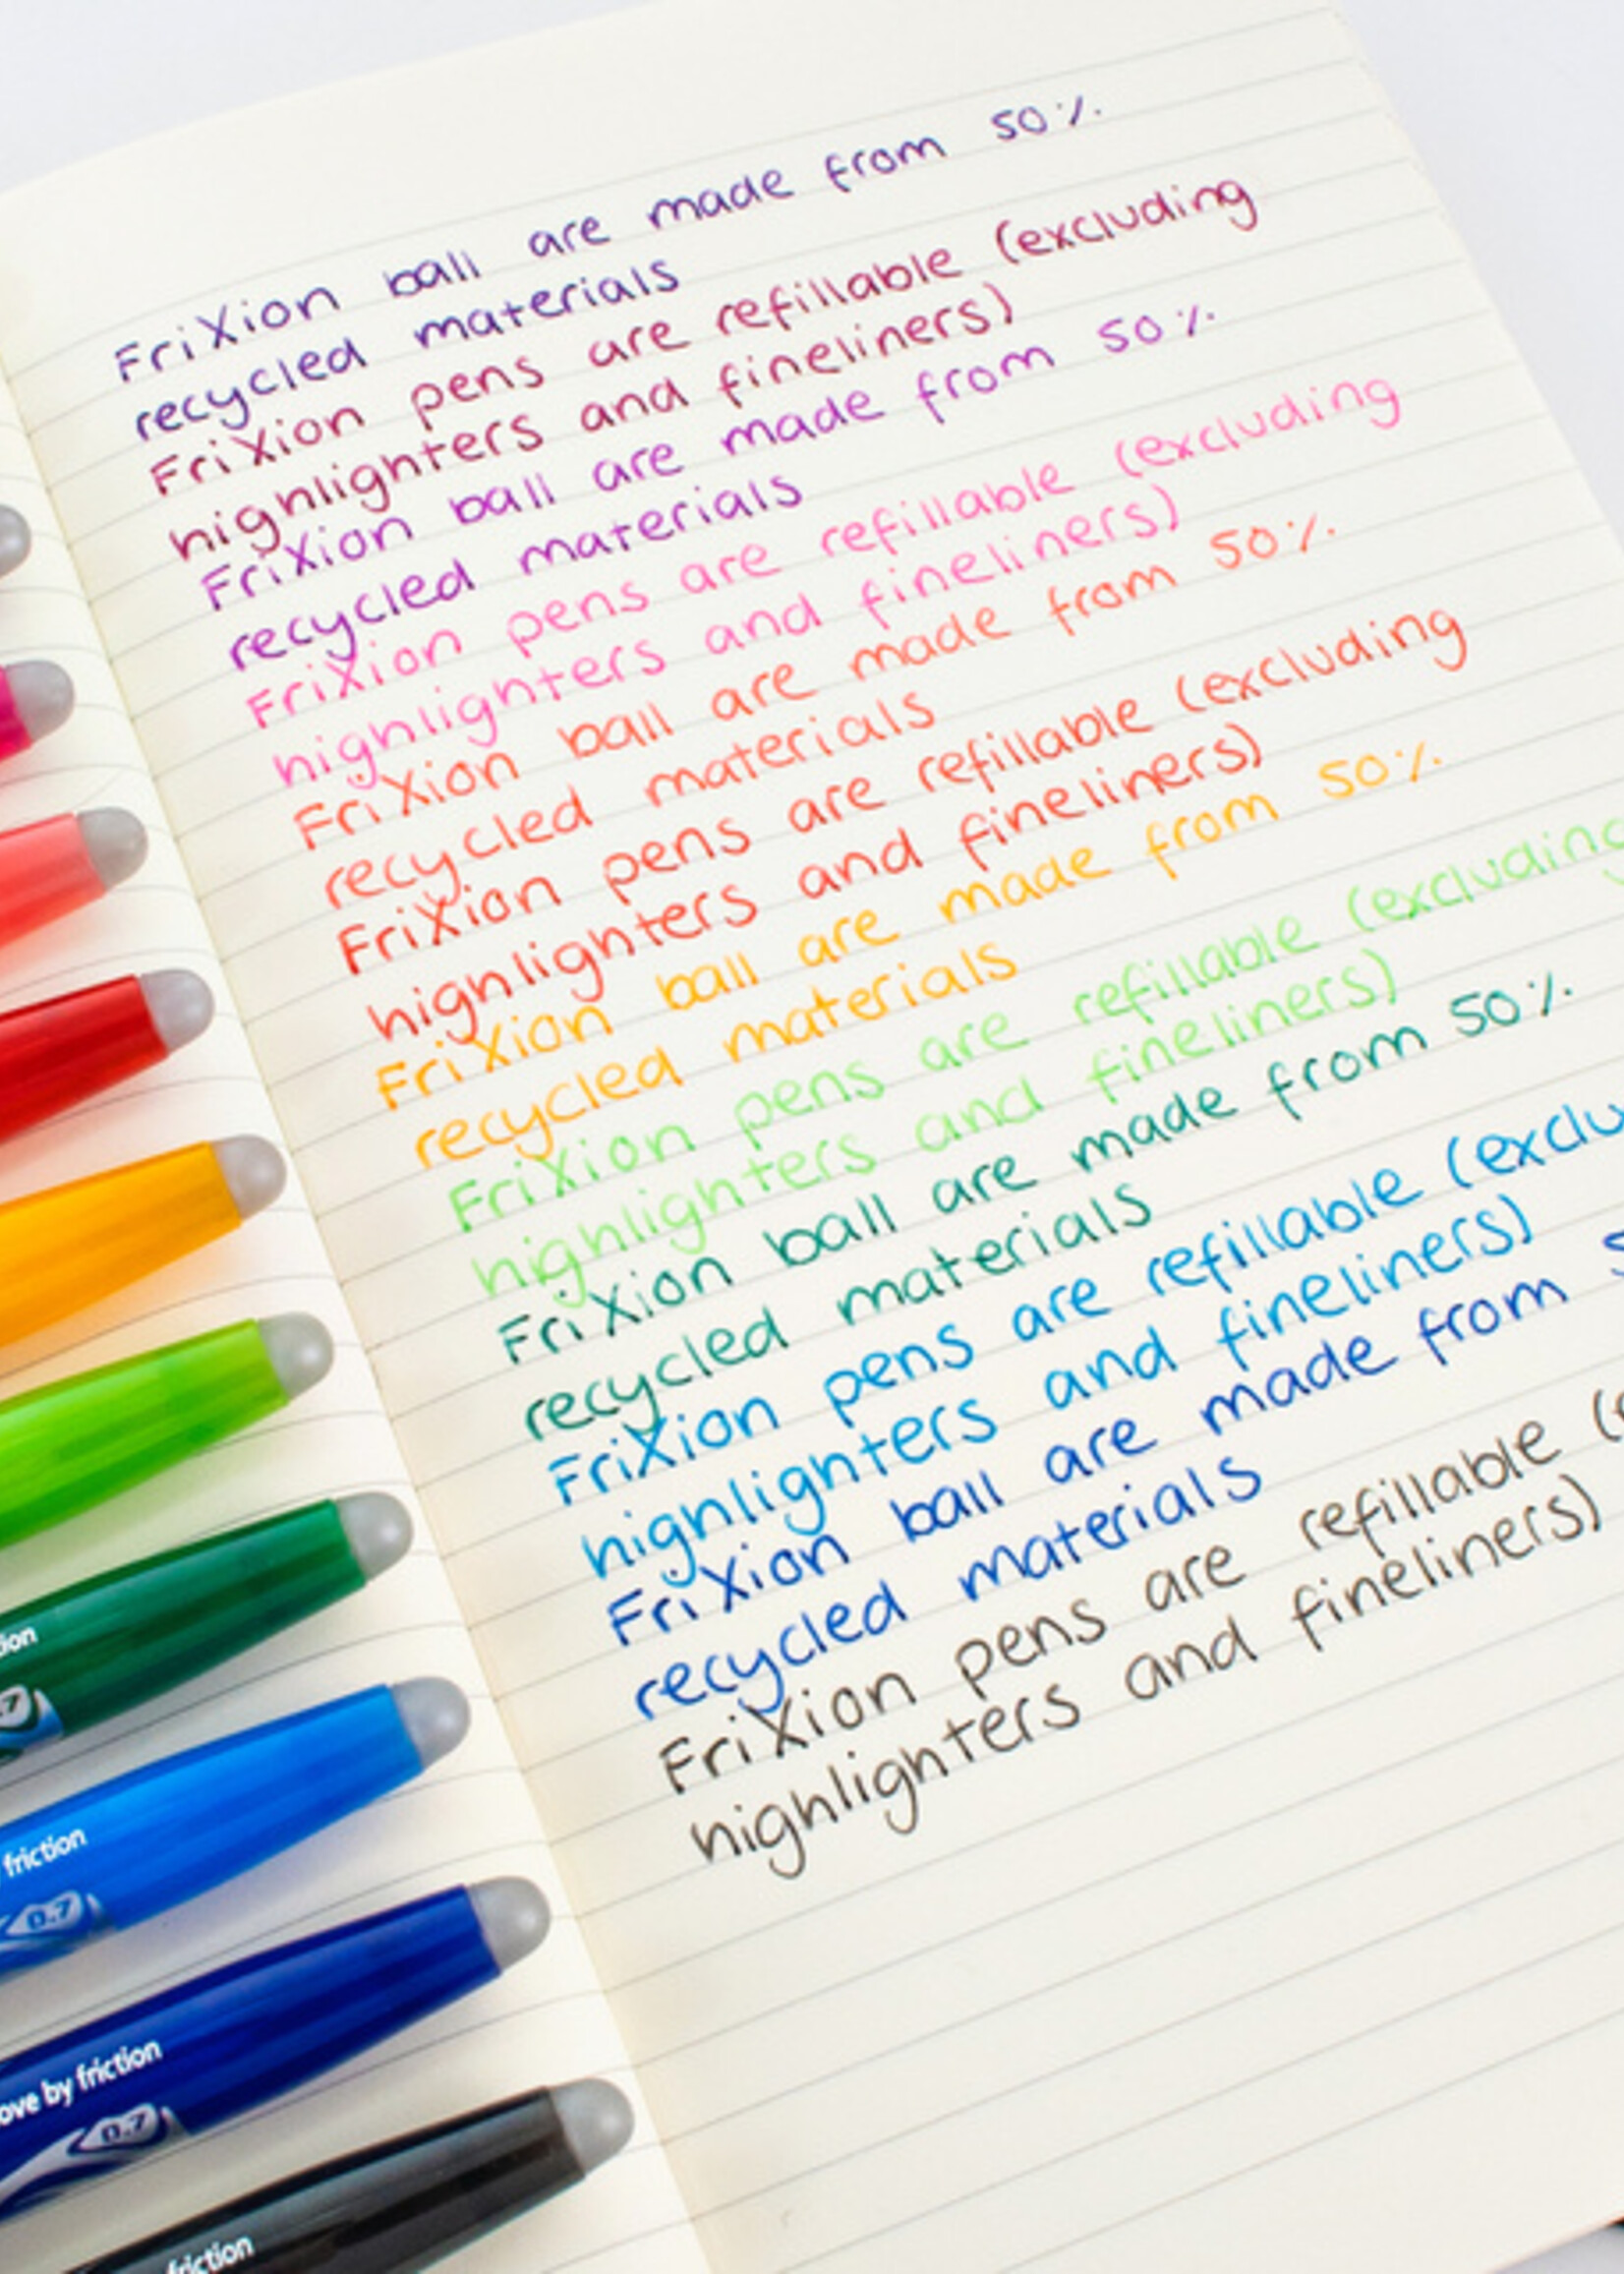 FriXion ball are made from 50%
recycled materials
FriXion pens are refillable (excluding
highlighters and fineliners)
FriXion ball are made from 50%
recycled materials
FriXion pens are refillable (excluding
highlighters and fineliners)
FriXion ball are made from 50%
recycled materials
FriXion pens are refillable (excluding
highlighters and fineliners)
FriXion ball are made from 50%
recycled materials
FriXion pens are refillable (excluding
highlighters and fineliners)
FriXion ball are made from 50%
recycled materials
FriXion pens are refillable (exclu
highlighters and fineliners)
FriXion ball are made from
recycled materials
FriXion pens are refillable
highlighters and fineliners)
friction
0.7
by friction
0.7
friction